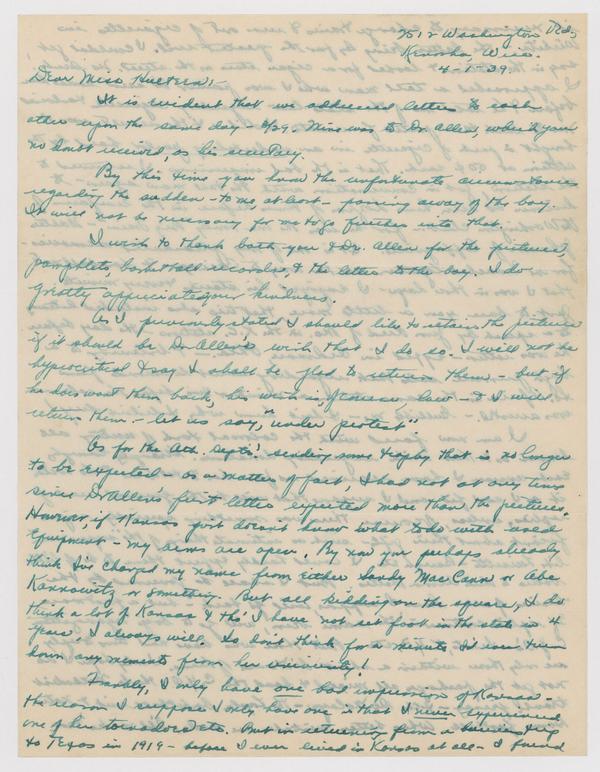 2512 Washington Rd,
Kenosha, Wisc.
4-1-39.
Dear Miss Hultera:-
It is evident that we addressed letters to each
other upon the same day - 3/29. Mine was to Dr. Allen, which you
no doubt received, as his secretary.
By this time you know the unfortunate circumstances
regarding the sudden - to me, at least - passing away of the boy.
It will not be necessary for me to go further into that.
I wish to thank both you & Dr. Allen for the pictures,
pamphlets, basketball records, & the letter to the boy. I do
greatly appreciate your kindness.
As I previously stated I should like to retain the pictures
if it should be Dr. Allen's wish that I do so. I will not be
hypocritical & say I shall be glad to return them - but if
he does want them back, his wish is, of course law - & I will
return them - let us say, "under protest"
As for the Ath. Dept's! sending some trophy that is no longer
to be expected - as a matter of fact, I had not at any time
since Dr Allen's first letter expected more than the pictures.
However, if Kansas just doesn't know what to do with used
equipment - my arms are open. By now you perhaps already
think I've changed my name from either Sandy MacCann or Abe
Kannowitz or something. But all kidding on the square, I do
think a lot of Kansas & tho' I have not set foot in the state in 4
years, I always will. So don't think for a minute I'd ever turn
down any memento from her university!
Frankly, I only have one bad impression of Kansas -
the reason I suppose I only have one is that I never experienced
one of her tornadoes etc. But in returning from a trip
to Texas in 1919 - before I ever lived in Kansas at all - I found